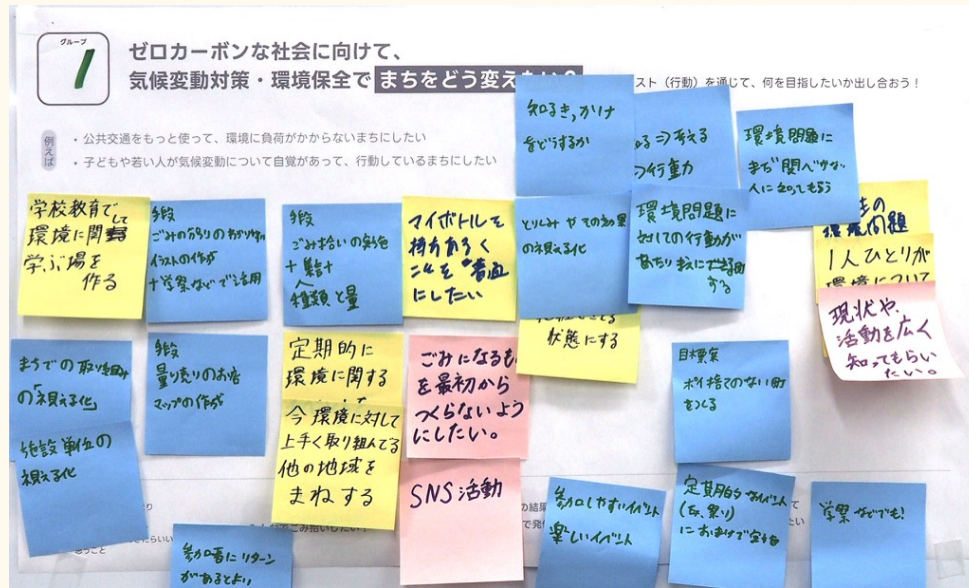 グループ
1
ゼロカーボンな社会に向けて、
気候変動対策・環境保全で まちをどう変えたい?
スト(行動)を通じて、何を目指したいか出し合おう!
例えば
・公共交通をもっと使って、環境に負荷がかからないまちにしたい
・子どもや若い人が気候変動について自覚があって、行動しているまちにしたい
知るきっかけ
をどうするか
考える
行動力
環境問題に
まだ関心がない
人に知ってもらう
学校教育で
環境に関して
学ぶ場を
作る
手段
ごみの分別のわかりやすい
イラストの作成
+学祭などで活用
手段
ごみ拾いの
+集計
種類と量
マイボトルを
持ちあるく
ことを"普通"
にしたい
とりくみやその効果
の視える化
環境問題に
対しての行動が
あたりまえにできる町
する
環境問題
1人ひとりが
環境について
現状や、
活動を広く
知ってもらい
たい。
状態にする
まちでの取り組み
の「視える化」
手段
量り売りのお店
マップの作成
定期的に
環境に関する
今環境に対して
上手く取り組んでる
他の地域を
まねする
ごみになるもの
を最初から
つくらないよう
にしたい。
目標案
ポイ捨てのない町
をつくる
施設単位の
視える化
SNS活動
参加しやすいイベント
楽しいイベント
定期的なイベント
におまけで
学祭などでも!
参加者にリターン
があるとよい